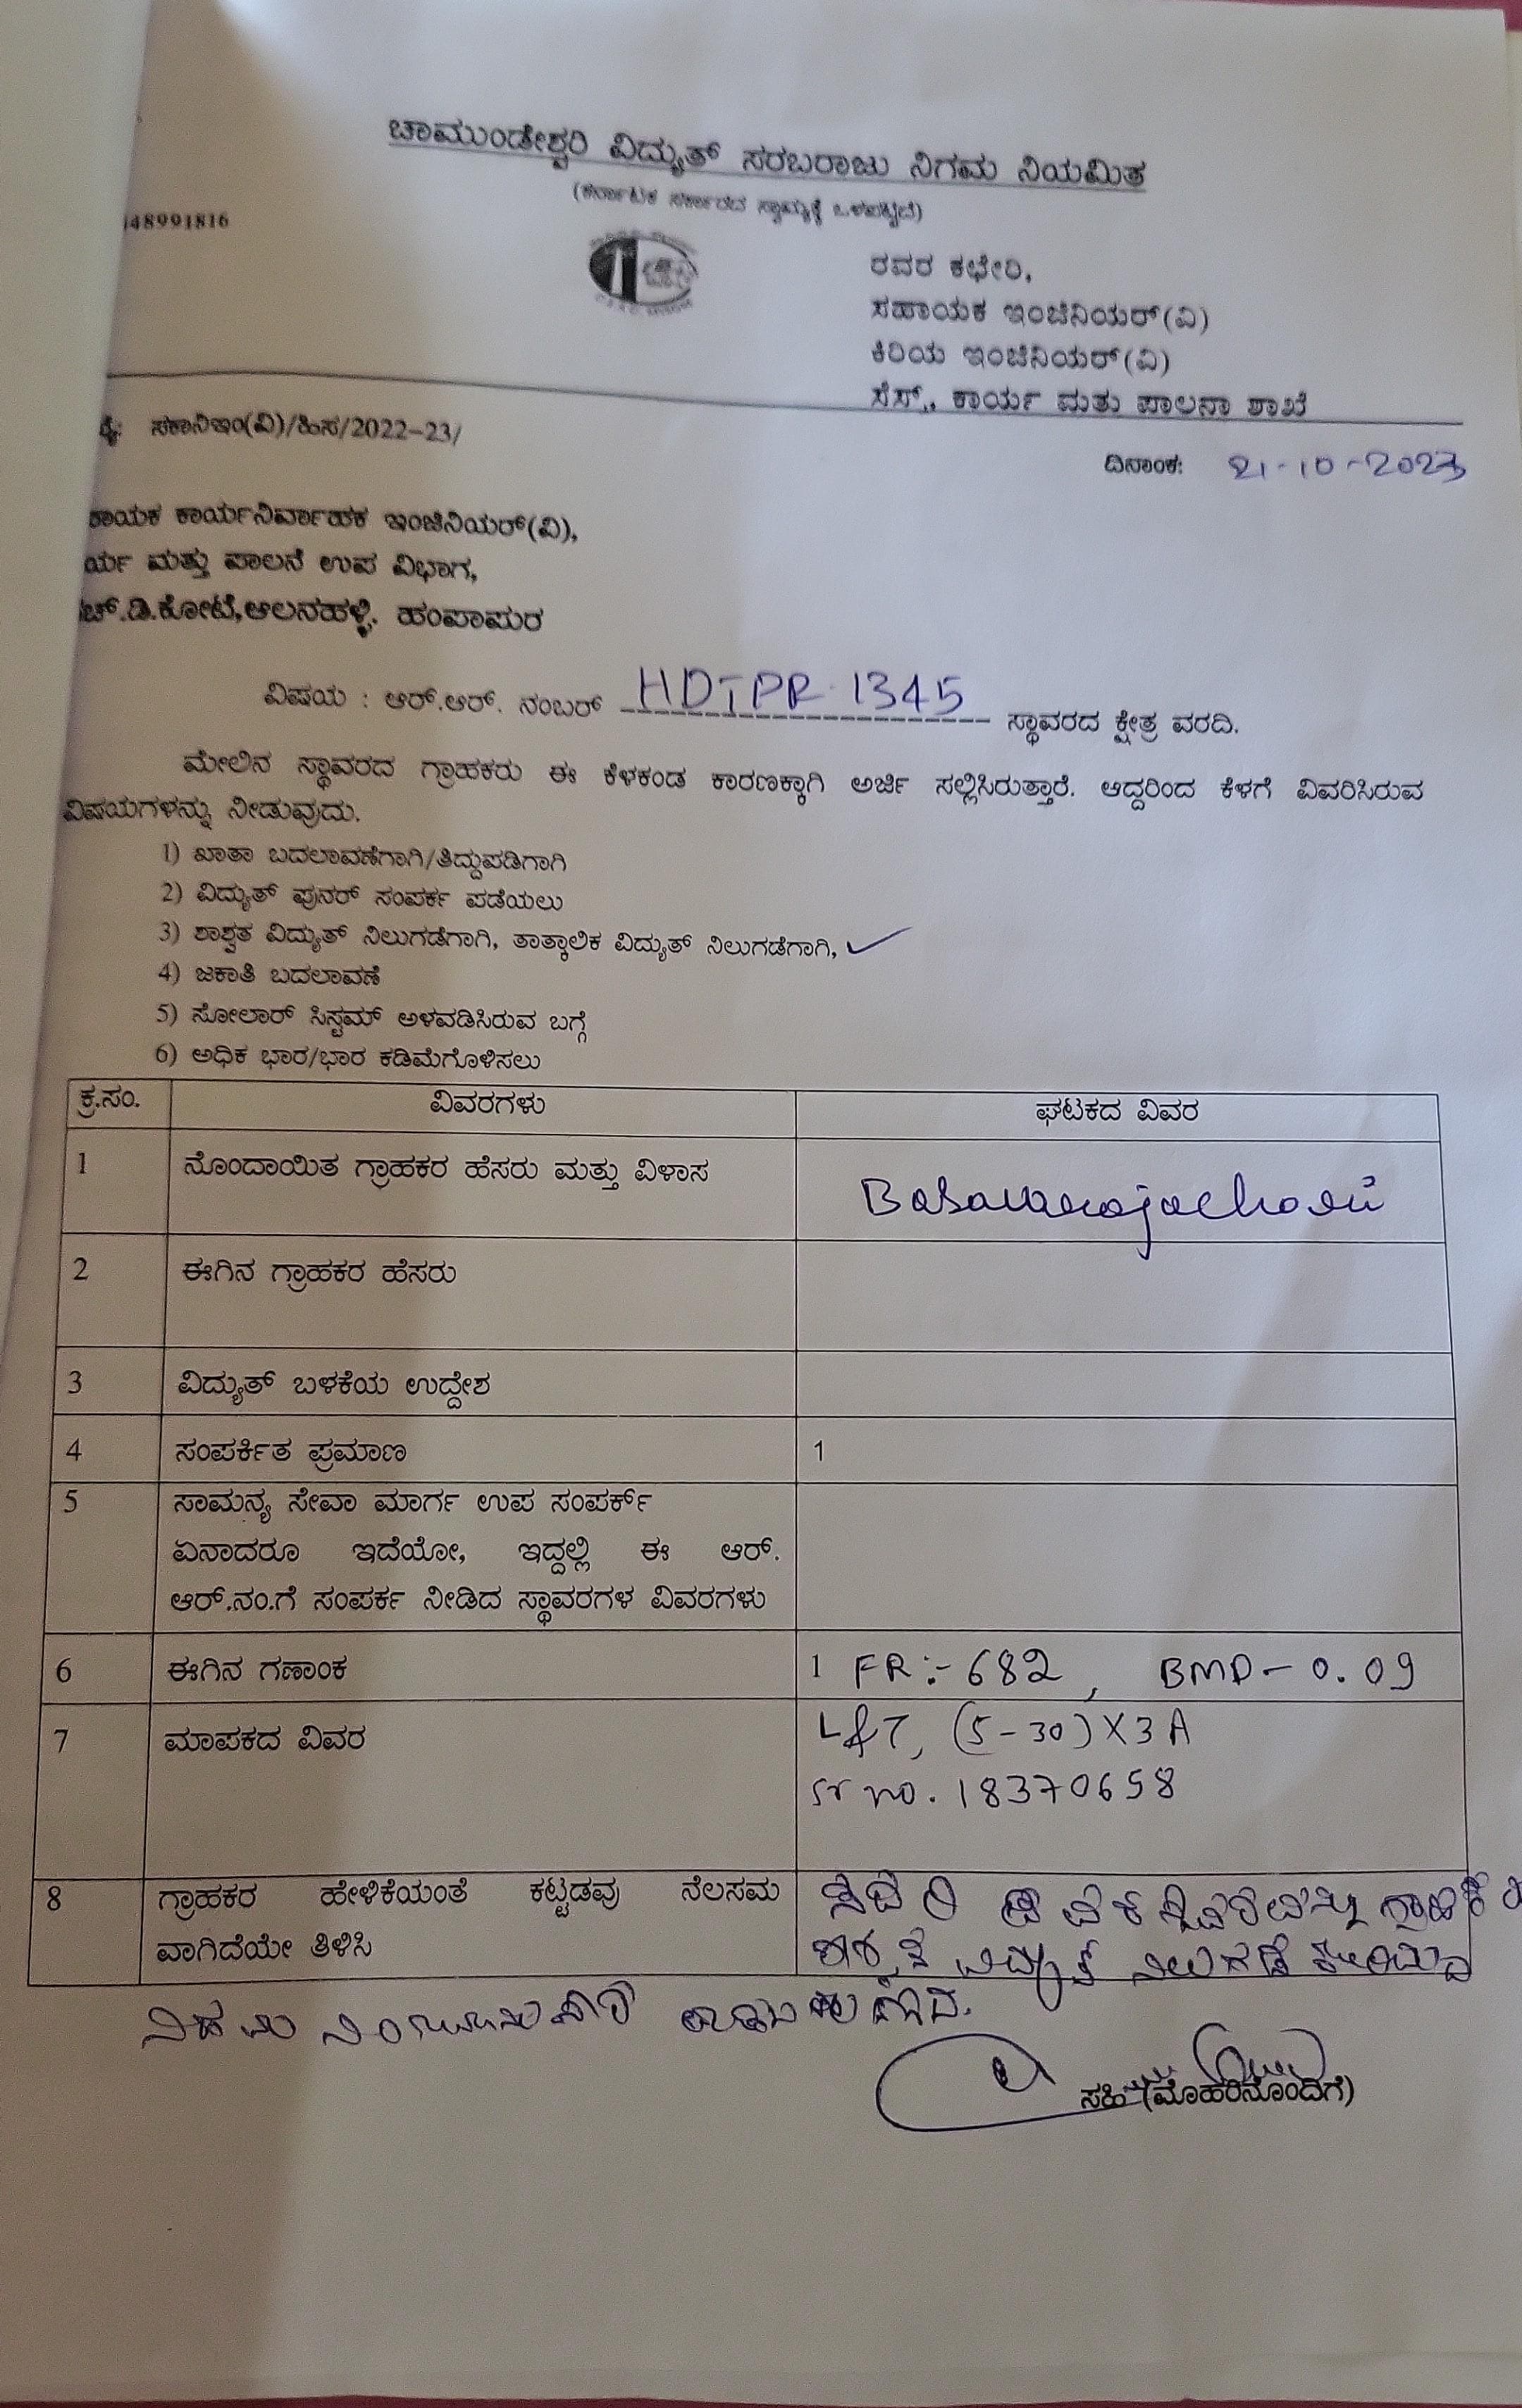 ಚಾಮುಂಡೇಶ್ವರಿ ವಿದ್ಯುತ್ ಸರಬರಾಜು ನಿಗಮ ನಿಯಮಿತ
(ಕರ್ನಾಟಕ ಸರ್ಕಾರದ ಸ್ವಾಮ್ಯಕ್ಕೆ ಒಳಪಟ್ಟಿದೆ)
48991816
ರವರ ಕಛೇರಿ,
ಸಹಾಯಕ ಇಂಜಿನಿಯರ್(ವಿ)
ಕಿರಿಯ ಇಂಜಿನಿಯರ್(ವಿ)
ಸೆಸ್, ಕಾರ್ಯ ಮತು ಪಾಲನಾ ಶಾಖೆ
ಸಕಾನಿಇಂ(ವಿ)/ಹಿಸ/2022-23/
ದಿನಾಂಕ: 21-10-2023
ಾಯಕ ಕಾರ್ಯನಿರ್ವಾಹಕ ಇಂಜಿನಿಯರ್(ವಿ),
ರ್ಯ ಮತ್ತು ಪಾಲನೆ ಉಪ ವಿಭಾಗ,
ಚ್.ಡಿ.ಕೋಟೆ,ಆಲನಹಳ್ಳಿ, ಹಂಪಾಪುರ
ವಿಷಯ : ಆರ್.ಆರ್. ನಂಬರ್ HDTPR 1345 ಸ್ಥಾವರದ ಕ್ಷೇತ್ರ ವರದಿ.
ಮೇಲಿನ ಸ್ಥಾವರದ ಗ್ರಾಹಕರು ಈ ಕೆಳಕಂಡ ಕಾರಣಕ್ಕಾಗಿ ಅರ್ಜಿ ಸಲ್ಲಿಸಿರುತ್ತಾರೆ. ಆದ್ದರಿಂದ ಕೆಳಗೆ ವಿವರಿಸಿರುವ
ವಿಷಯಗಳನ್ನು ನೀಡುವುದು.
1) ಖಾತಾ ಬದಲಾವಣೆಗಾಗಿ/ತಿದ್ದುಪಡಿಗಾಗಿ
2) ವಿದ್ಯುತ್ ಪುನರ್ ಸಂಪರ್ಕ ಪಡೆಯಲು
3) ಶಾಶ್ವತ ವಿದ್ಯುತ್ ನಿಲುಗಡೆಗಾಗಿ, ತಾತ್ಕಾಲಿಕ ವಿದ್ಯುತ್ ನಿಲುಗಡೆಗಾಗಿ, ✓
4) ಜಕಾತಿ ಬದಲಾವಣೆ
5) ಸೋಲಾರ್ ಸಿಸ್ಟಮ್ ಅಳವಡಿಸಿರುವ ಬಗ್ಗೆ
6) ಅಧಿಕ ಭಾರ/ಭಾರ ಕಡಿಮೆಗೊಳಿಸಲು
ಕ್ರ.ಸಂ. ವಿವರಗಳು ಘಟಕದ ವಿವರ
1 ನೊಂದಾಯಿತ ಗ್ರಾಹಕರ ಹೆಸರು ಮತ್ತು ವಿಳಾಸ Basavarajachari
2 ಈಗಿನ ಗ್ರಾಹಕರ ಹೆಸರು
3 ವಿದ್ಯುತ್ ಬಳಕೆಯ ಉದ್ದೇಶ
4 ಸಂಪರ್ಕಿತ ಪ್ರಮಾಣ 1
5 ಸಾಮನ್ಯ ಸೇವಾ ಮಾರ್ಗ ಉಪ ಸಂಪರ್ಕ್
ಏನಾದರೂ ಇದೆಯೋ, ಇದ್ದಲ್ಲಿ ಈ ಆರ್.
ಆರ್.ನಂ.ಗೆ ಸಂಪರ್ಕ ನೀಡಿದ ಸ್ಥಾವರಗಳ ವಿವರಗಳು
6 ಈಗಿನ ಗಣಾಂಕ 1 FR:- 682, BMD - 0.09
7 ಮಾಪಕದ ವಿವರ L&T, (5-30)X3A
Sr no. 18370658
8 ಗ್ರಾಹಕರ ಹೇಳಿಕೆಯಂತೆ ಕಟ್ಟಡವು ನೆಲಸಮ ಸದರಿ
ವಾಗಿದೆಯೇ ತಿಳಿಸಿ ವಿದ್ಯುತ್ ನಿಲುಗಡೆ
ಸಹಿ (ಮೊಹರಿನೊಂದಿಗೆ)